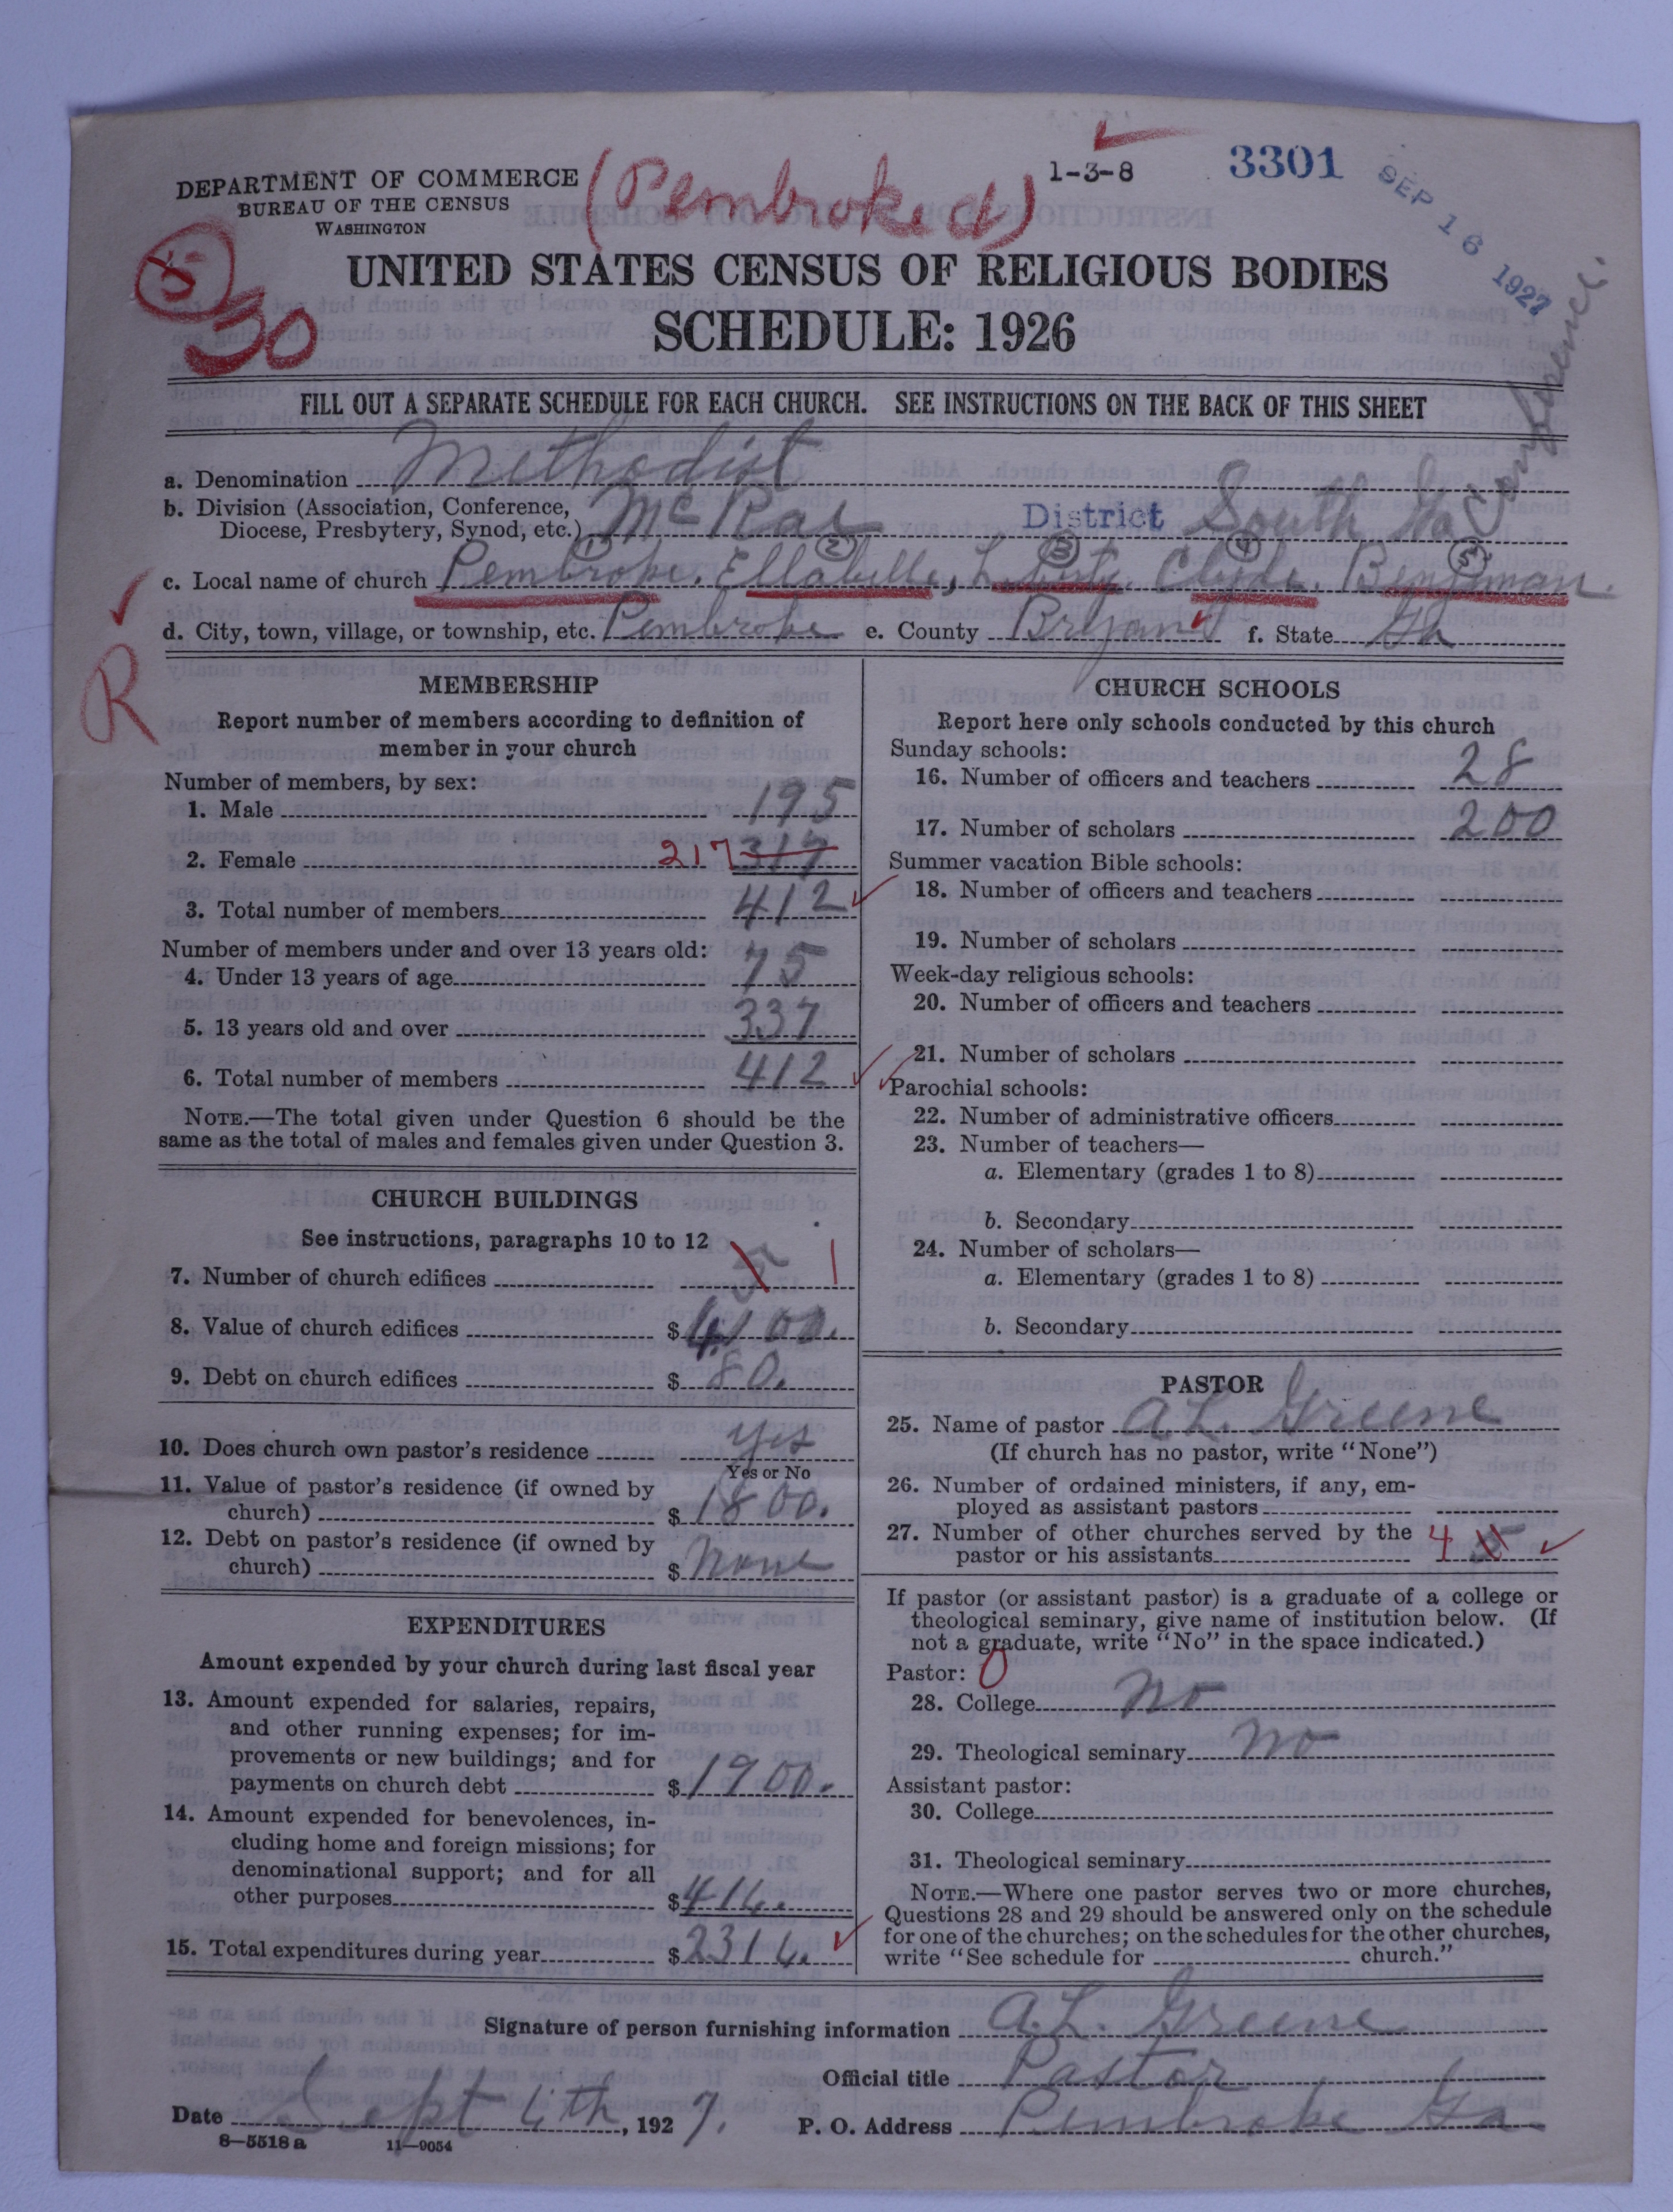 DEPARTMENT OF COMMERCE
BUREAU OF THE CENSUS
WASHINGTON
(Pembroke a)
1-3-8
3301
SEP 16 1927
5
50
UNITED STATES CENSUS OF RELIGIOUS BODIES
SCHEDULE: 1926
FILL OUT A SEPARATE SCHEDULE FOR EACH CHURCH. SEE INSTRUCTIONS ON THE BACK OF THIS SHEET
a. Denomination Methodist
b. Division (Association, Conference,
Diocese, Presbytery, Synod, etc.) McRae District South Ga Conference.
1 2 3 4 5
c. Local name of church Pembroke, Ellabelle, Liberty, Clyde, Bengman.
d. City, town, village, or township, etc. Pembroke e. County Bryan f. State Ga
R
MEMBERSHIP
Report number of members according to definition of
member in your church
Number of members, by sex:
1. Male 195
2. Female 217 317
3. Total number of members 412
Number of members under and over 13 years old:
4. Under 13 years of age 75
5. 13 years old and over 337
6. Total number of members 412
NOTE.—The total given under Question 6 should be the
same as the total of males and females given under Question 3.
CHURCH BUILDINGS
See instructions, paragraphs 10 to 12
7. Number of church edifices 5 1
8. Value of church edifices $4100.
9. Debt on church edifices $80.
10. Does church own pastor's residence yes
Yes or No
11. Value of pastor's residence (if owned by
church) $1800.
12. Debt on pastor's residence (if owned by
church) $None
EXPENDITURES
Amount expended by your church during last fiscal year
13. Amount expended for salaries, repairs,
and other running expenses; for im-
provements or new buildings; and for
payments on church debt $1900.
14. Amount expended for benevolences, in-
cluding home and foreign missions; for
denominational support; and for all
other purposes $416.
15. Total expenditures during year $2316.
CHURCH SCHOOLS
Report here only schools conducted by this church
Sunday schools:
16. Number of officers and teachers 28
17. Number of scholars 200
Summer vacation Bible schools:
18. Number of officers and teachers
19. Number of scholars
Week-day religious schools:
20. Number of officers and teachers
21. Number of scholars
Parochial schools:
22. Number of administrative officers
23. Number of teachers—
a. Elementary (grades 1 to 8)
b. Secondary
24. Number of scholars—
a. Elementary (grades 1 to 8)
b. Secondary
PASTOR
25. Name of pastor A.L. Greene
(If church has no pastor, write "None")
26. Number of ordained ministers, if any, em-
ployed as assistant pastors
27. Number of other churches served by the
pastor or his assistants 4 5
If pastor (or assistant pastor) is a graduate of a college or
theological seminary, give name of institution below. (If
not a graduate, write "No" in the space indicated.)
Pastor: 0
28. College No
29. Theological seminary No
Assistant pastor:
30. College
31. Theological seminary
NOTE.—Where one pastor serves two or more churches,
Questions 28 and 29 should be answered only on the schedule
for one of the churches; on the schedules for the other churches,
write "See schedule for church."
Signature of person furnishing information A.L. Greene
Official title Pastor
Date Sept 6th, 1927. P. O. Address Pembroke Ga
8—5518 a 11—9054